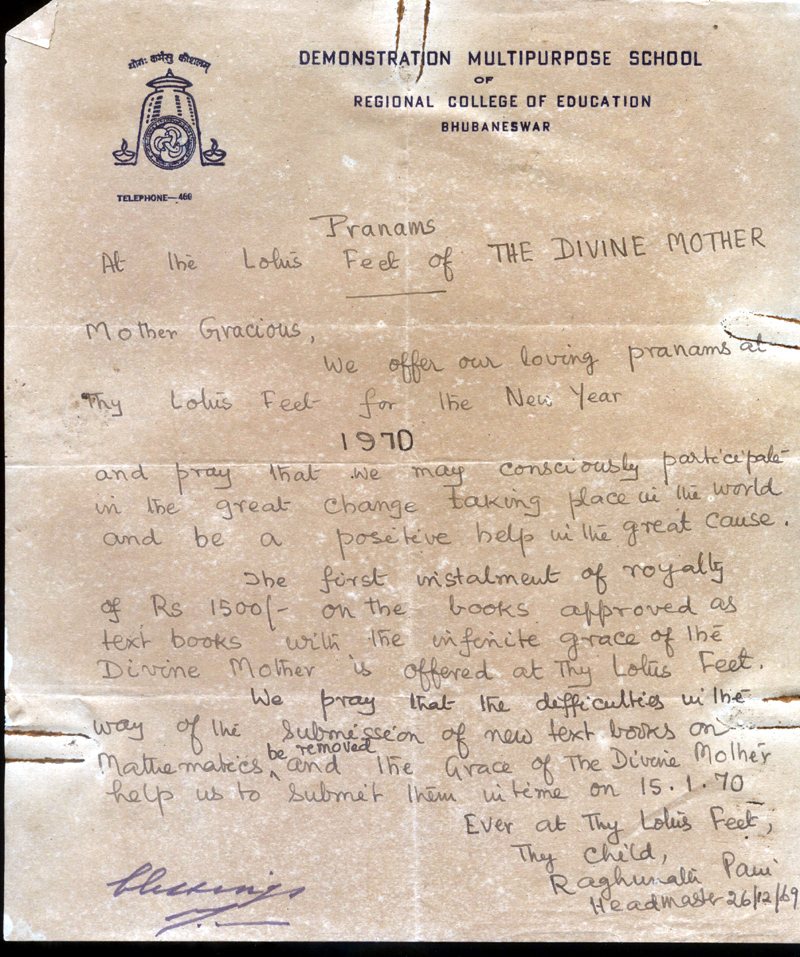 योगः कर्मसु कौशलम्
DEMONSTRATION MULTIPURPOSE SCHOOL
OF
REGIONAL COLLEGE OF EDUCATION
BHUBANESWAR
TELEPHONE—466
Pranams
At the Lotus Feet of THE DIVINE MOTHER
Mother Gracious,
We offer our loving pranams at
Thy Lotus Feet for the New Year
1970
and pray that we may consciously participate
in the great change taking place in the world
and be a positive help in the great cause.
The first instalment of royalty
of Rs 1500/- on the books approved as
text books with the infinite grace of the
Divine Mother is offered at Thy Lotus Feet.
We pray that the difficulties in the
way of the submission of new text books on
Mathematics be removed and the Grace of The Divine Mother
help us to submit them in time on 15.1.70
Ever at Thy Lotus Feet,
Thy child,
Raghunath Pani
Headmaster 26/12/69
blessings